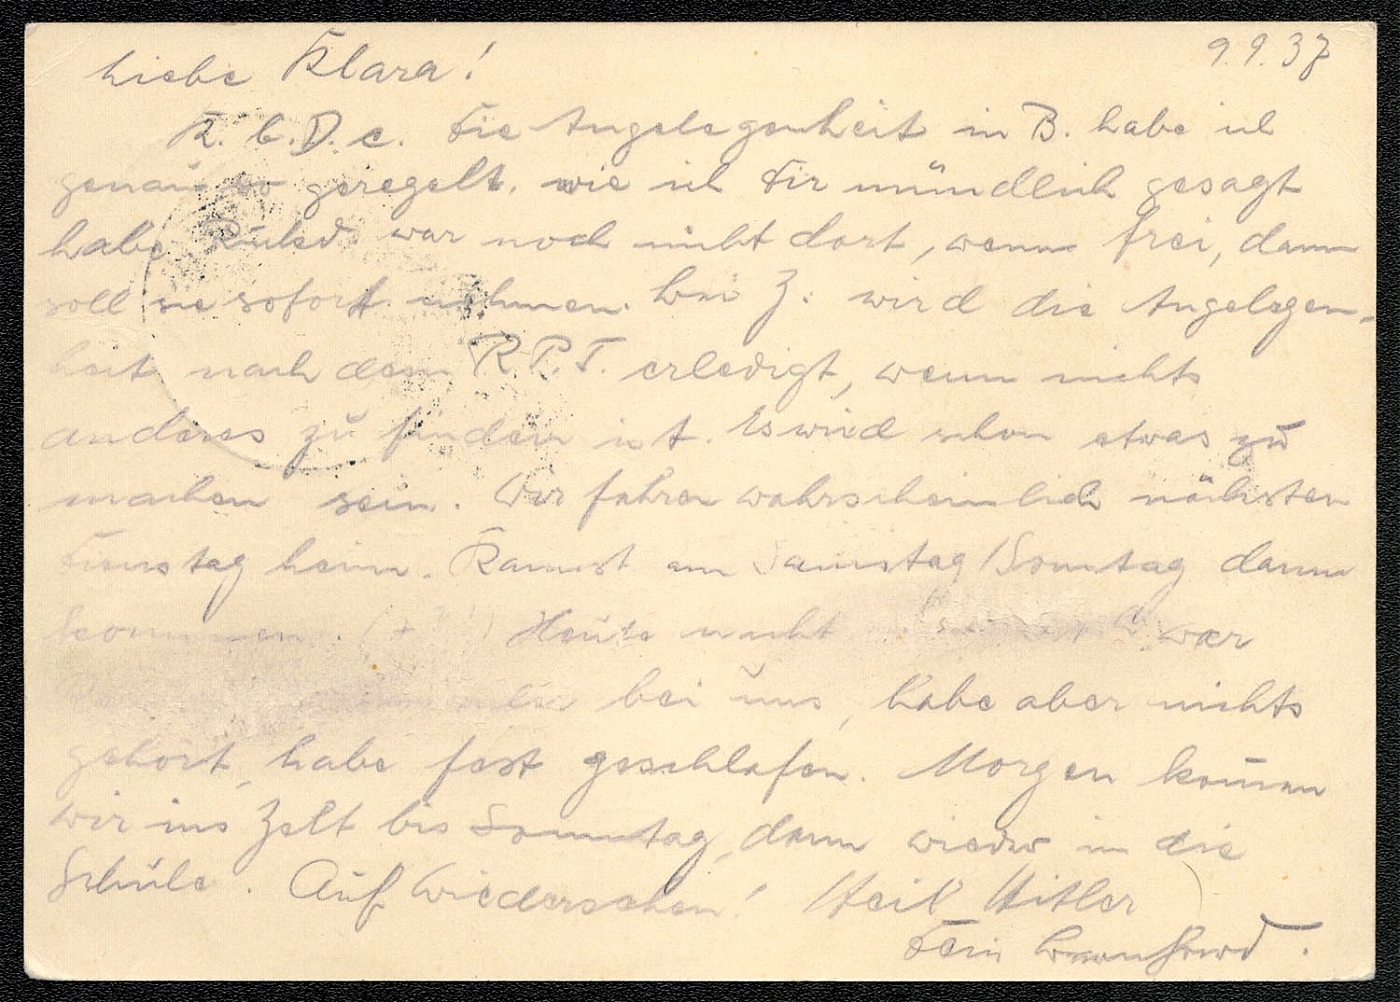 Liebe Klara! 9.9.37
K. b. D. c. Die Angelegenheit in B. habe ich
genau so geregelt. wie ich Dir mündlich gesagt
habe war noch nicht dort, wenn frei, dann
soll sie sofort nehmen. bei Z. wird die Angelegen-
heit nach dem R.P.T. erledigt, wenn nichts
anderes zu finden ist. Es wird schon etwas zu
machen sein. Wir fahren wahrscheinlich nächsten
Dienstag heim. Kannst am Samstag/Sonntag dann
kommen. Heute nacht war
bei uns, habe aber nichts
gehört, habe fest geschlafen. Morgen kom̄en
wir ins Zelt bis Sonntag, dann wieder in die
Schule. Auf Wiedersehen! Heil Hitler
Dein